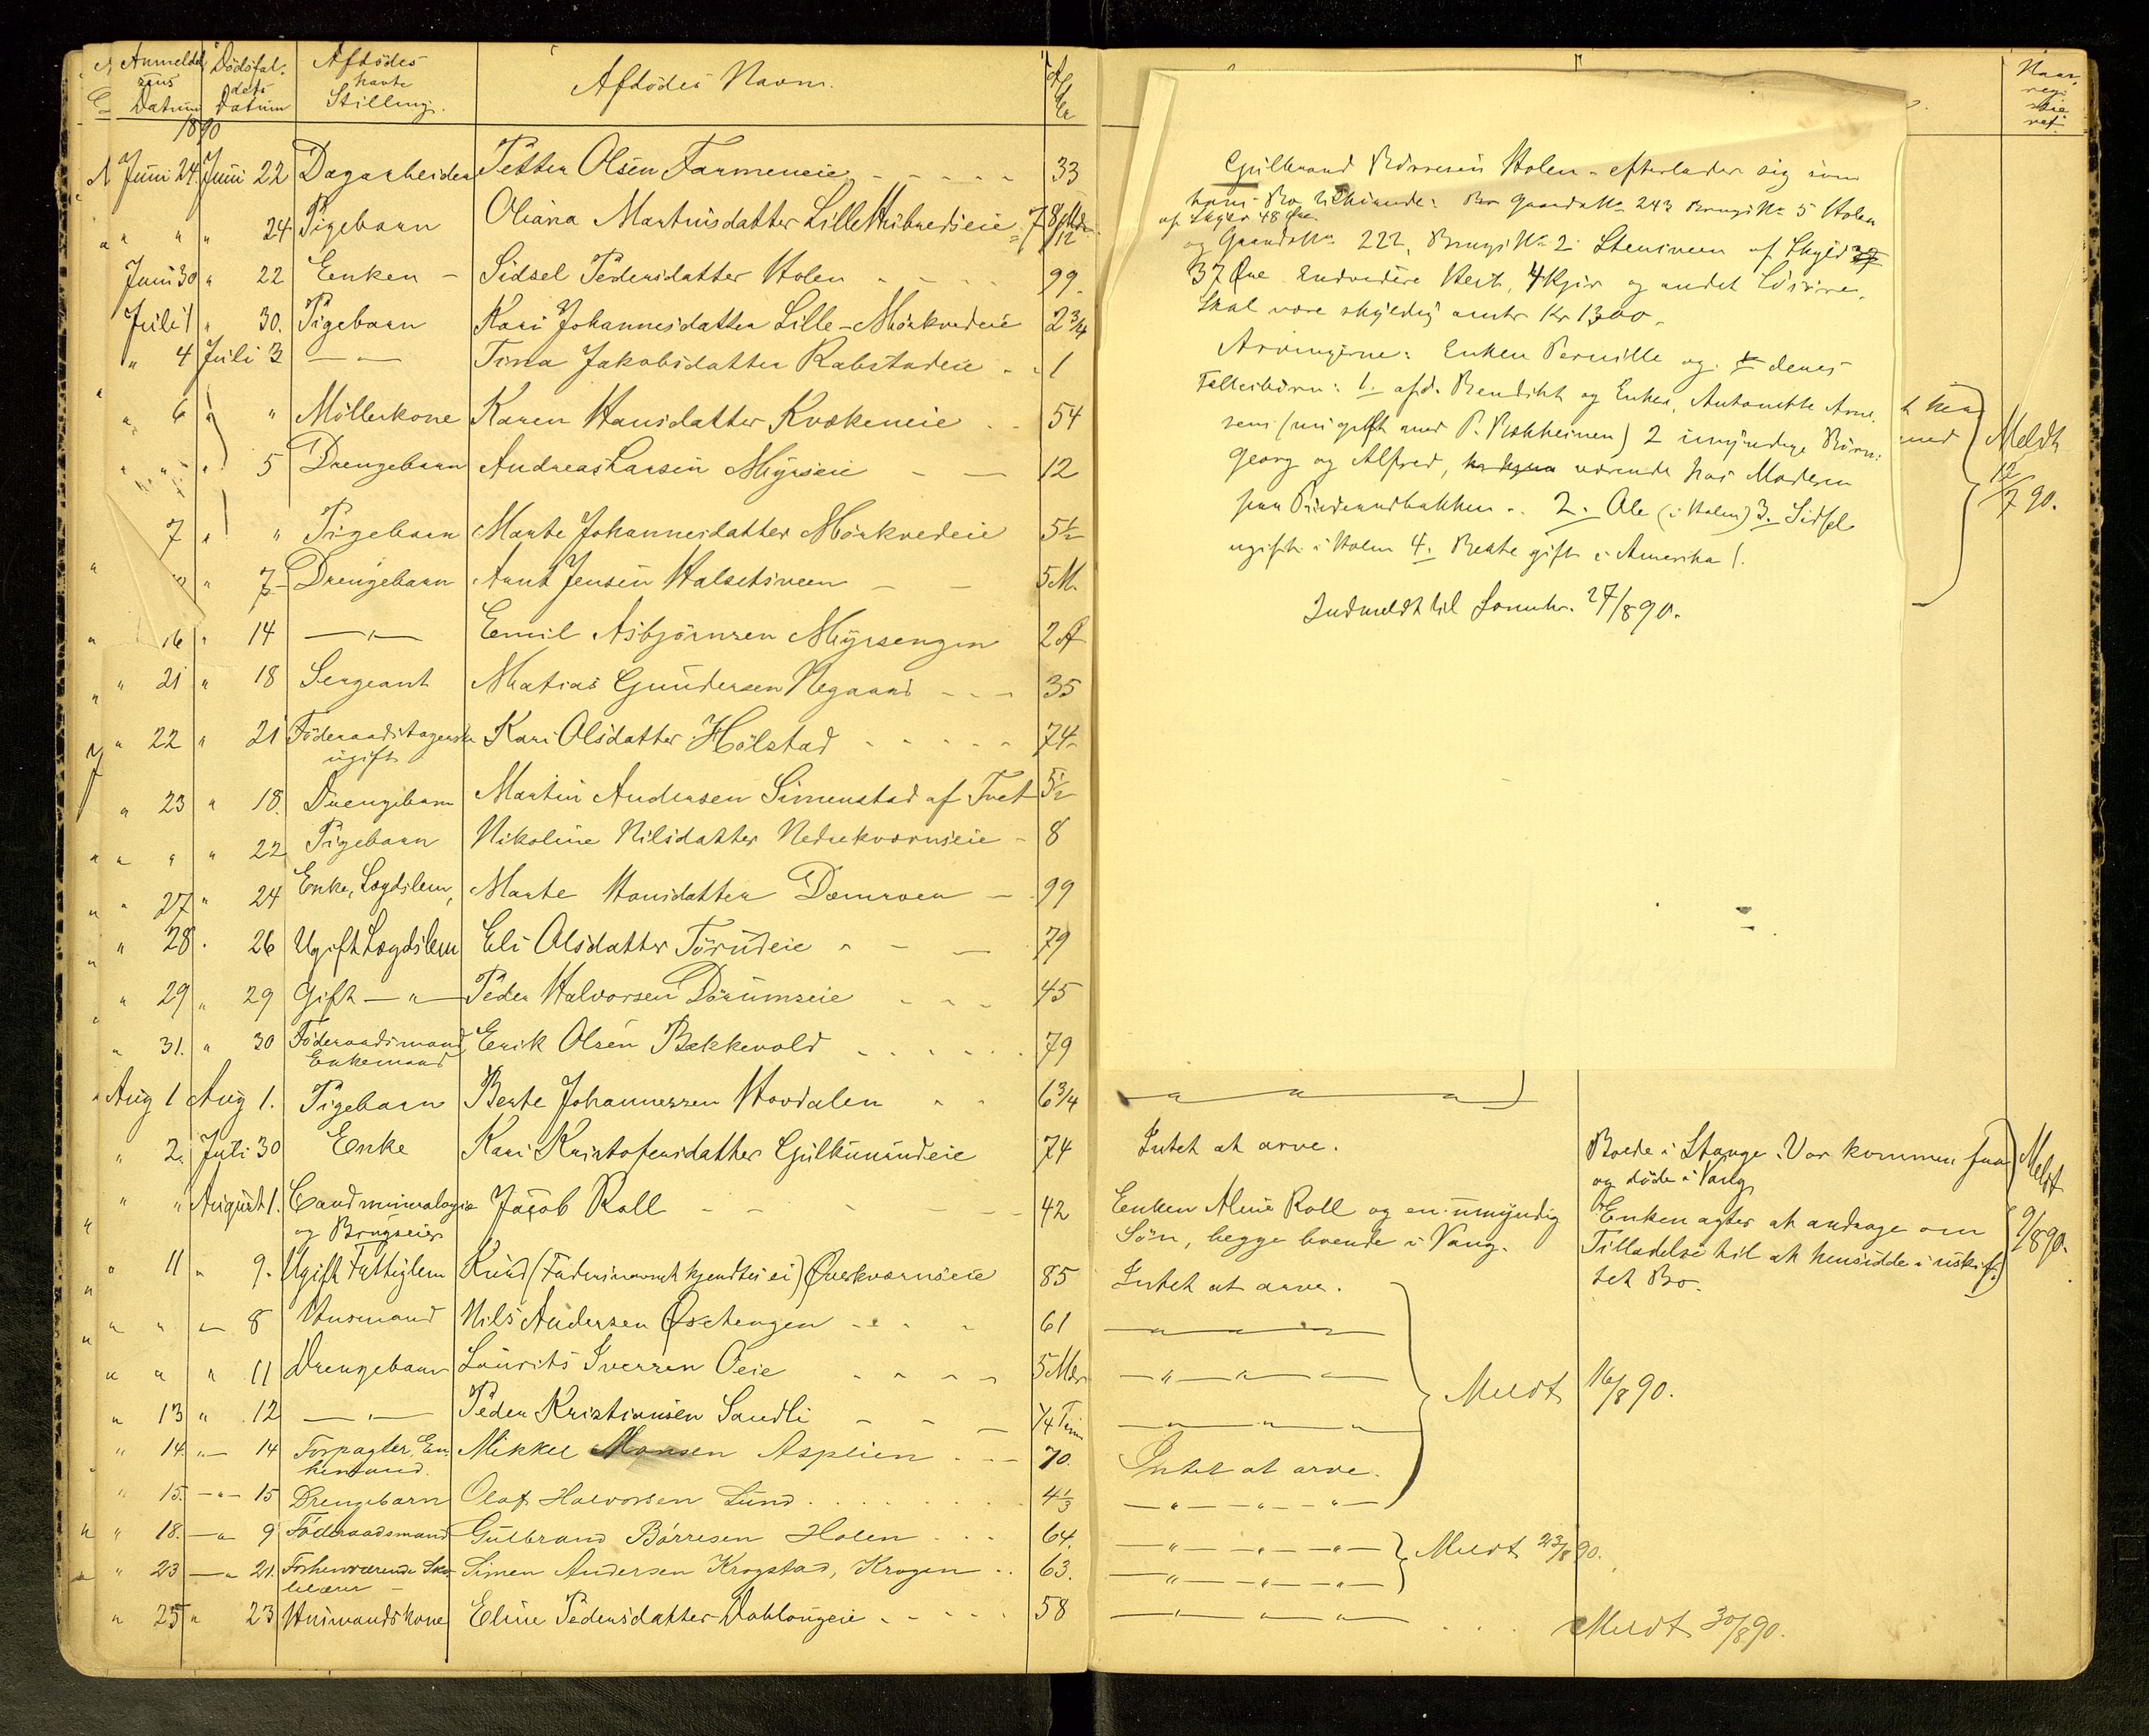 Anmeldel
sens
Datum
Dödsfal-
dets
Datum
Afdödes
havte
Stilling.
Afdödes Navn.
Al
der
Naar
regi
stre
ret.
1890
Juni 24. Juni 22 Dagarbeider Petter Olsen Farmeneie - - - - - 33
" " 24 Pigebarn Oliana Martinsdatter Lille
Juni 30 " 22 Enken - Sidsel Pedersdatter Holen - - - - 99.
Juli 1 " 30. Pigebarn Kari Johannesdatter Lille-Mörkvedeie 2 3/4
" 4 Juli 3 — " — Tina Jakobsdatter Rabstadeie - - 1
" 6 " " Möllerkone Karen Hansdatter Kvækeneie - - 54
" " " 5 Drengebarn Andreas Larsen Myrseie - — 12
7 " " Pigebarn Marte Johannesdatter Mörkvedeie 5 1/2
" 7 Drengebarn Arnt Jensen Halsetsveen — — 5 M.
16 " 14 — " — Emil Asbjörnsen Myrsengen 2 A
" 21 " 18 Sergeant Matias Gundersen Negaard - - - 35
" 22 " 21 Föderaadstagerske Kari Olsdatter Hölstad - - - - - 74
ugift
" 23 " 18. Drengebarn Martin Andersen Simenstad af Tvet 5 1/2
" " " 22 Pigebarn Nikoline Nilsdatter Nedrekvernseie - 8
" 27 " 24 Enke, Lægdslem, Marte Hansdatter Dæmroen — 99
" 28 " 26 Ugift Lægdslem Eli Olsdatter Törudeie " — — 79
" 29 " 29 Gift — " — Peder Halvorsen Dörumseie - - - 45
" 31. " 30 Föderaadsmand Erik Olsen Bækkevold - - - - - - 79
Enkemand
Aug 1 Aug 1. Pigebarn Berte Johannessen Hovdalen " " 6 3/4
" 2. Juli 30 Enke Kari Kristofersdatter Gulkunrudeie 74
" " August 1. Cand mineralogie Jacob Roll - - - - - 42
og Brugseier
" 11 " 9. Ugift Fattiglem Knud (Faderennavnet kjendtes ei) Øverkvernseie 85
" " — 8 Husmand Nils Andersen Østengen - - - - 61
" " " 11 Drengebarn Laurits Iversen Oeie - - - - 5 Mdr
" 13 " 12 — " — Peder Kristiansen Sandli - - — 1/4 Time
" 14 — 14 Forpagter, En- Mikkel Monsen Asplien . - - 70.
kemand.
" 15. — " — 15 Drengebarn Olaf Halvorsen Lund . . . . . . 4 1/3
" " 18. — " 9 Föderaadsmand Gulbrand Börresen Holen . . . 64.
" 23 — " 21. Forhenværende Sko- Simen Andersen Krogstad, Krogen . . 63.
lelærer —
" 25 " 23 Husmandskone Eline Pedersdatter Dahlongeie - - - - - 58
Gulbrand Börresen Holen - efterlader sig som
hans Bo tilhörende: Bor Gaards No 243 Brugs No 5 Holen
af Skyld 48 Øre
og Gaards No 222, Brugs No 2 Stensveen af Skyld 37
37 Øre Endvidere Hest, 4 Kjør og andet Lösöre.
Skal være skyldig omtr. Kr 1300.
Arvingerne: Enken Pernille og 4 deres
Fællesbörn: 1. afd. Bendikt og Enken, Antonette Arne-
sens (nu gift med P. Bækheimen) 2 umyndige Börn:
Georg og Alfred, værende hos Moderen
paa. 2. Ole (i Holen) 3. Sidsel
ugift i Holen 4. Beate gift i Amerika).
Indmeldt til Sorensk. 27/8 90.
med
Meldt
12/7 90.
— " — " — " —
Intet at arve.
Boede i Stange. Var kommen
og döde i Vang
Meldt
9/8 90.
Enken Aline Roll og en umyndig
Sön, begge boende i Vang.
Enken agter at andrage om
Tilladelse til at hensidde i uskif-
tet Bo.
Intet at arve.
— " — " — " —
— " — " — " —
— " — " — " —
Meldt 16/8 90.
Intet at arve.
— " — " — " —
— " — " — " —
Meldt 23/8 90.
— " — " — " —
— " — " — " —
Meldt 30/8 90.